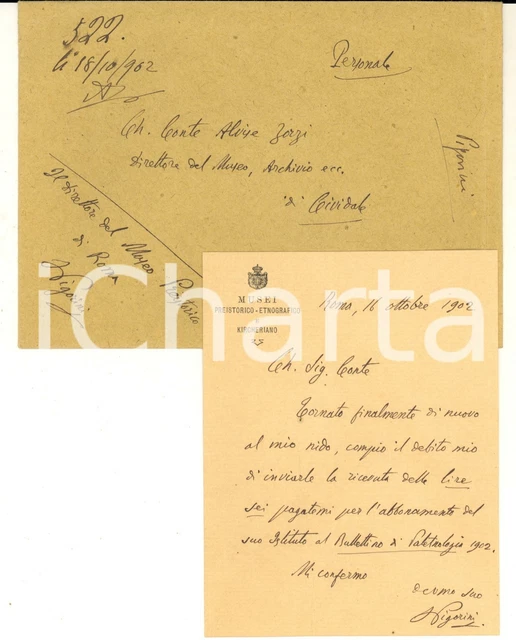 522.
li 18/10/902
Personale
Ch. Conte Alvise Zorzi
Direttore del Museo, Archivio ecc.
di Cividale
Pigorini
Il Direttore del Museo Preistorico
di Roma
Pigorini
iCharta
MUSEI
PREISTORICO-ETNOGRAFICO
KIRCHERIANO
Roma, 16 ottobre 1902
Ch. Sig. Conte
Tornato finalmente di nuovo
al mio nido, compio il debito mio
di inviarle la ricevuta delle lire
sei pagatemi per l'abbonamento del
suo Istituto al Bullettino di Paletnologia 1902.
Mi confermo
devmo suo
Pigorini